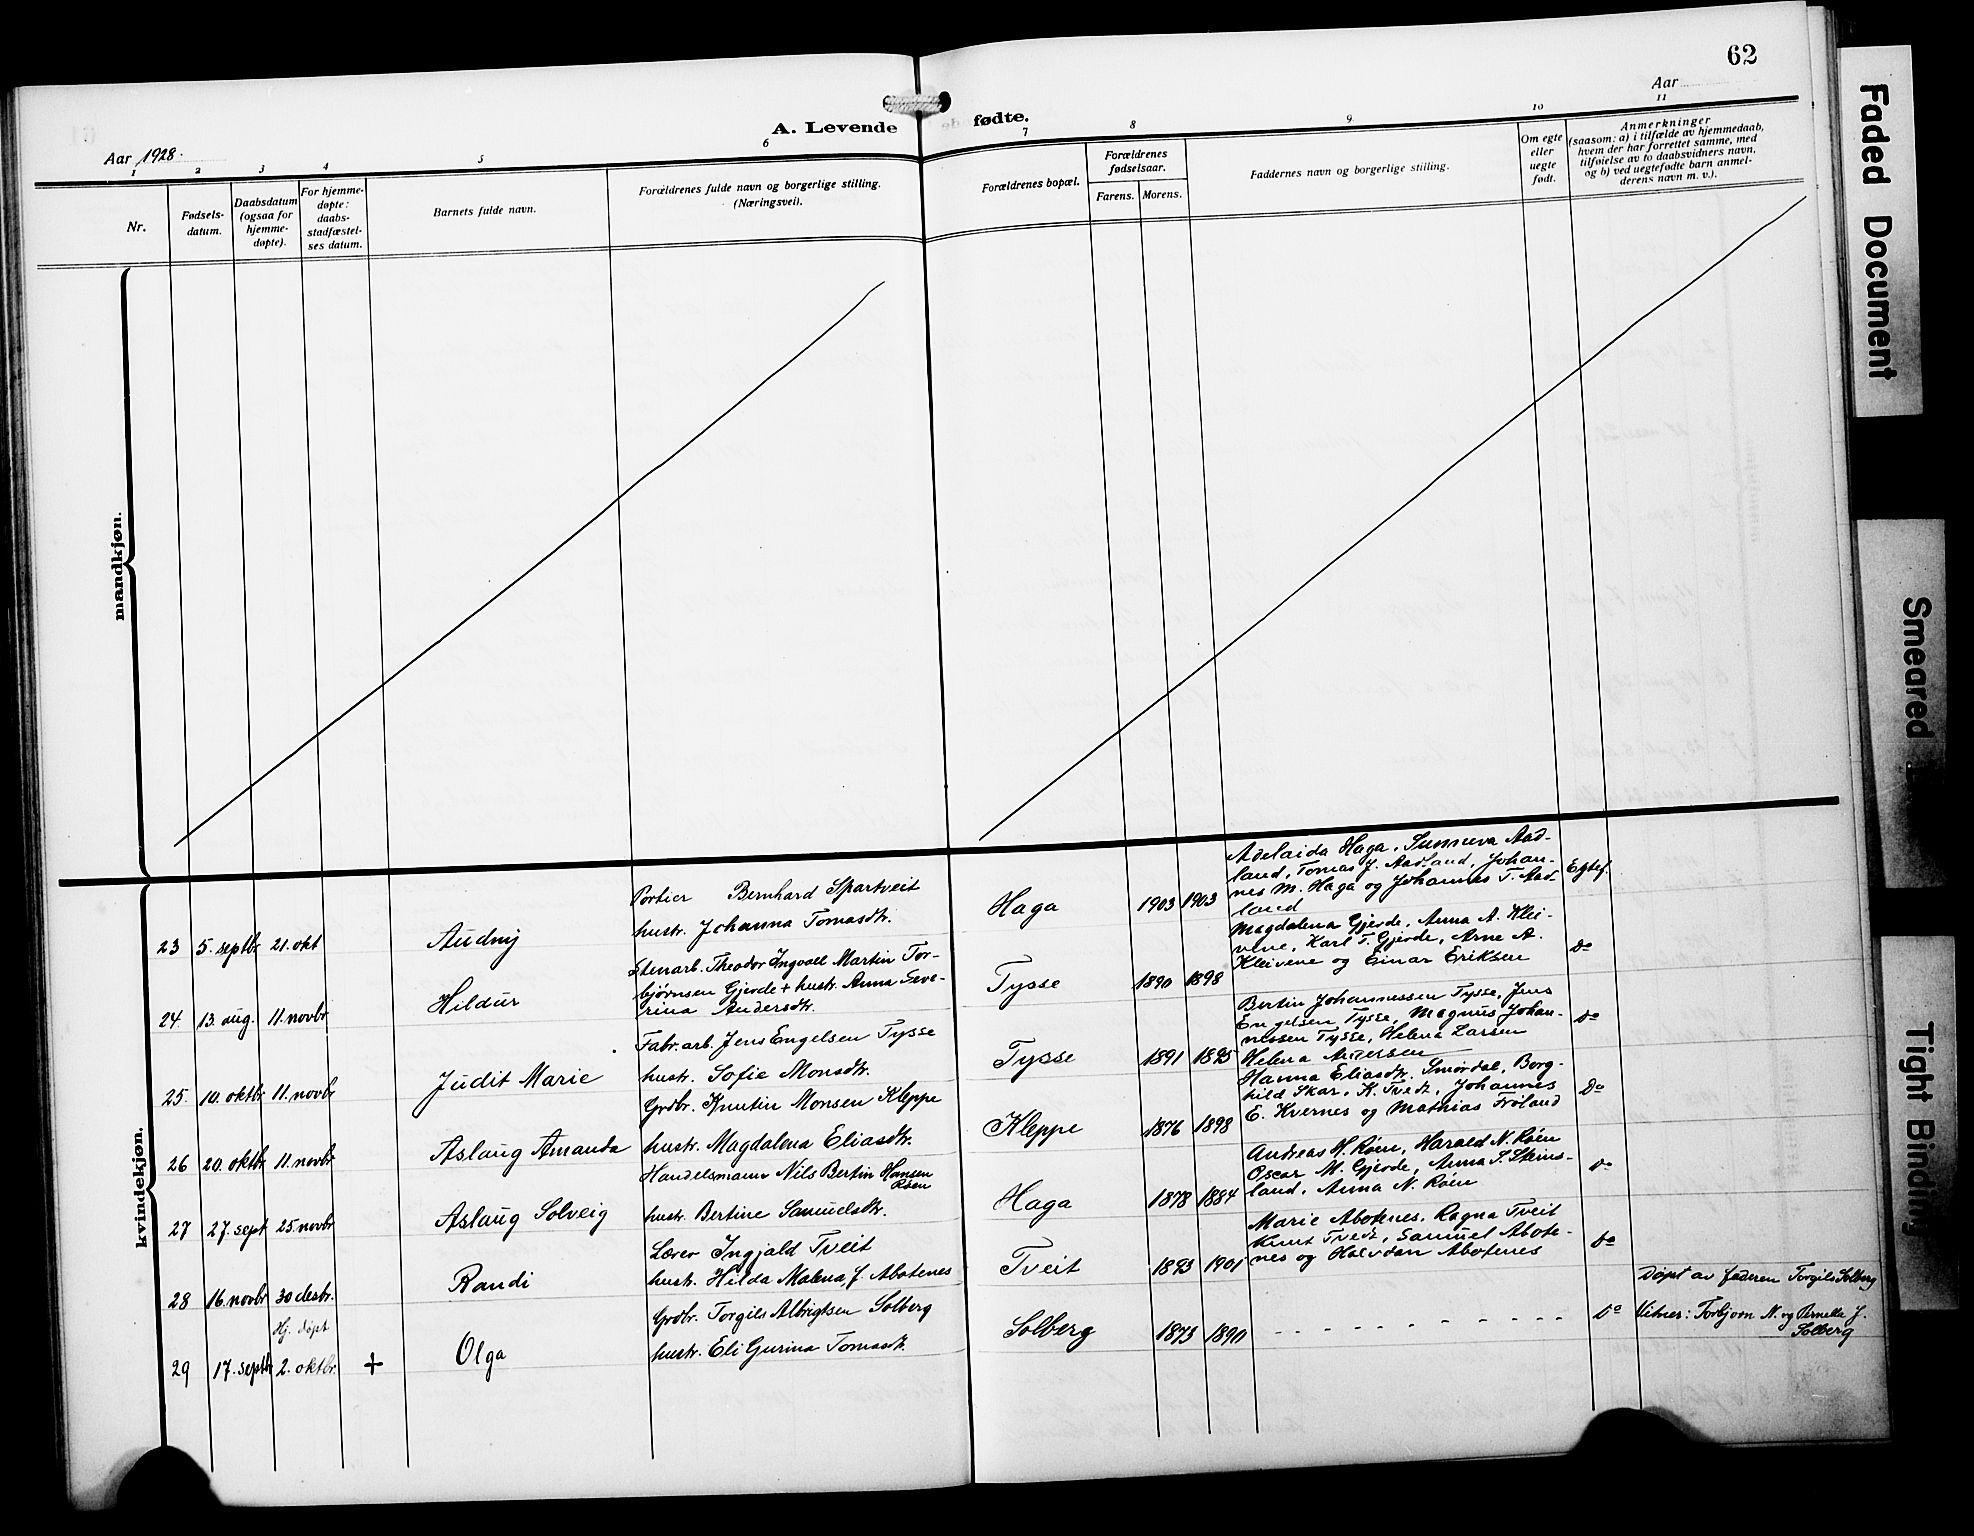 62
Aar
A. Levende fødte.
Aar 1928.
1 2 3 4 5 6 7 8 9 10 11
Nr.
Fødsels-
datum.
Daabsdatum
(ogsaa for
hjemme-
døpte).
For hjemme-
døpte:
daabs-
stadfæstel-
ses datum.
Barnets fulde navn.
Forældrenes fulde navn og borgerlige stilling.
(Næringsvei).
Forældrenes bopæl.
Forældrenes
fødselsaar.
Farens. Morens.
Faddernes navn og borgerlige stilling.
Om egte
eller
uegte
født.
Anmerkninger
(saasom: a) i tilfælde av hjemmedaab,
hvem der har forrettet samme, med
tilføielse av to daabsvidners navn,
og b) ved uegtefødte barn anmel-
derens navn m. v.).
mandkjøn.
kvindekjøn.
23 5. septbr 21. okt
Audny
Portier Bernhard Spartveit
hustr. Johanna Tomasdtr.
Haga
1903 1903
Adelaida Haga, Sunneva Aad-
land, Tomas J. Aadland, Johan-
nes M. Haga og Johannes T. Aad-
land
Egtef.
24. 13. aug. 11. novbr
Hildur
Stenarb. Theodor Ingvald Martin Tor-
bjørnsen Gjerde + hustr. Anna Seve-
rina Andersdtr.
Tysse
1890 1898
Magdalena Gjerde, Anna A. Klei-
vene, Karl T. Gjerde, Arne A.
Kleivene og Einar Eriksen
Do
25. 10. oktbr 11. novbr
Judit Marie
Fabr.arb. Jens Engelsen Tysse
hustr. Sofie Monsdtr.
Tysse
1891 1895
Bertin Johannessen Tysse, Jens
Engelsen Tysse, Magnus Johan-
nessen Tysse, Helena Larsen
Helena Andersen
Do
26 20. oktbr 11. novbr
Aslaug Amanda
Grdbr. Knutin Monsen Kleppe
hustr. Magdalena Eliasdtr.
Kleppe
1876 1898
Hanna Eliasdtr. Smørdal, Borg-
hild Skar, K. Tveit, Johannes
E. Kvernes og Mathias Frøland
Do
27 27. sept 25 novbr
Aslaug Solveig
Handelsmann Nils Bertin Hansen
Røen
hustr. Bertine Samuelsdtr.
Haga
1878 1884
Andreas H. Røen, Harald N. Røen
Oscar M. Gjerde, Anna S. Steins-
land, Anna N. Røen
Do
28 16. novbr 30 desbr.
Randi
Lærer Ingjald Tveit
hustr. Hilda Malena J. Abotenes
Tveit
1893 1901
Marie Abotnes, Ragna Tveit
Knut Tveit, Samuel Abote-
nes og Halvdan Abotenes
Do
29 17. septbr Hj. døpt
2. oktbr. +
Olga
Grdbr. Torgils Albrigtsen Solberg
hustr. Eli Gurina Tomasdtr.
Solberg
1873 1890
- - - - - - - - - - -
Do
Døpt av faderen Torgils Solberg
Vitner: Torbjørn N. og Pernella J.
Solberg
Faded Document
Smeared
Tight Binding